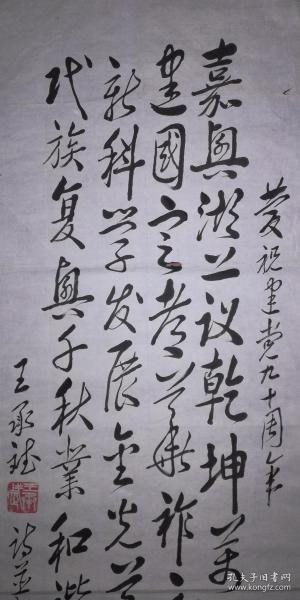 庆祝建党九十周年
嘉兴湖上议乾坤
建国定都
新科学发展
代族复兴千秋业和谐
王承斌
诗并
孔夫子旧书网